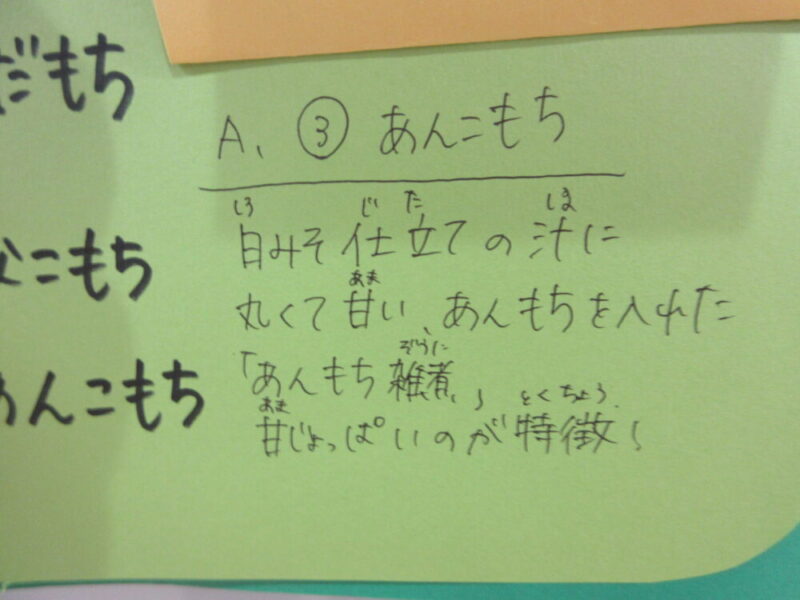 だもち
こもち
あんこもち
A、③ あんこもち
しろ じ た しる
白みそ仕立ての汁に
あま
丸くて甘い、あんもちを入れた
ぞうに
「あんもち雑煮」
あま とくちょう
甘じょっぱいのが特徴!